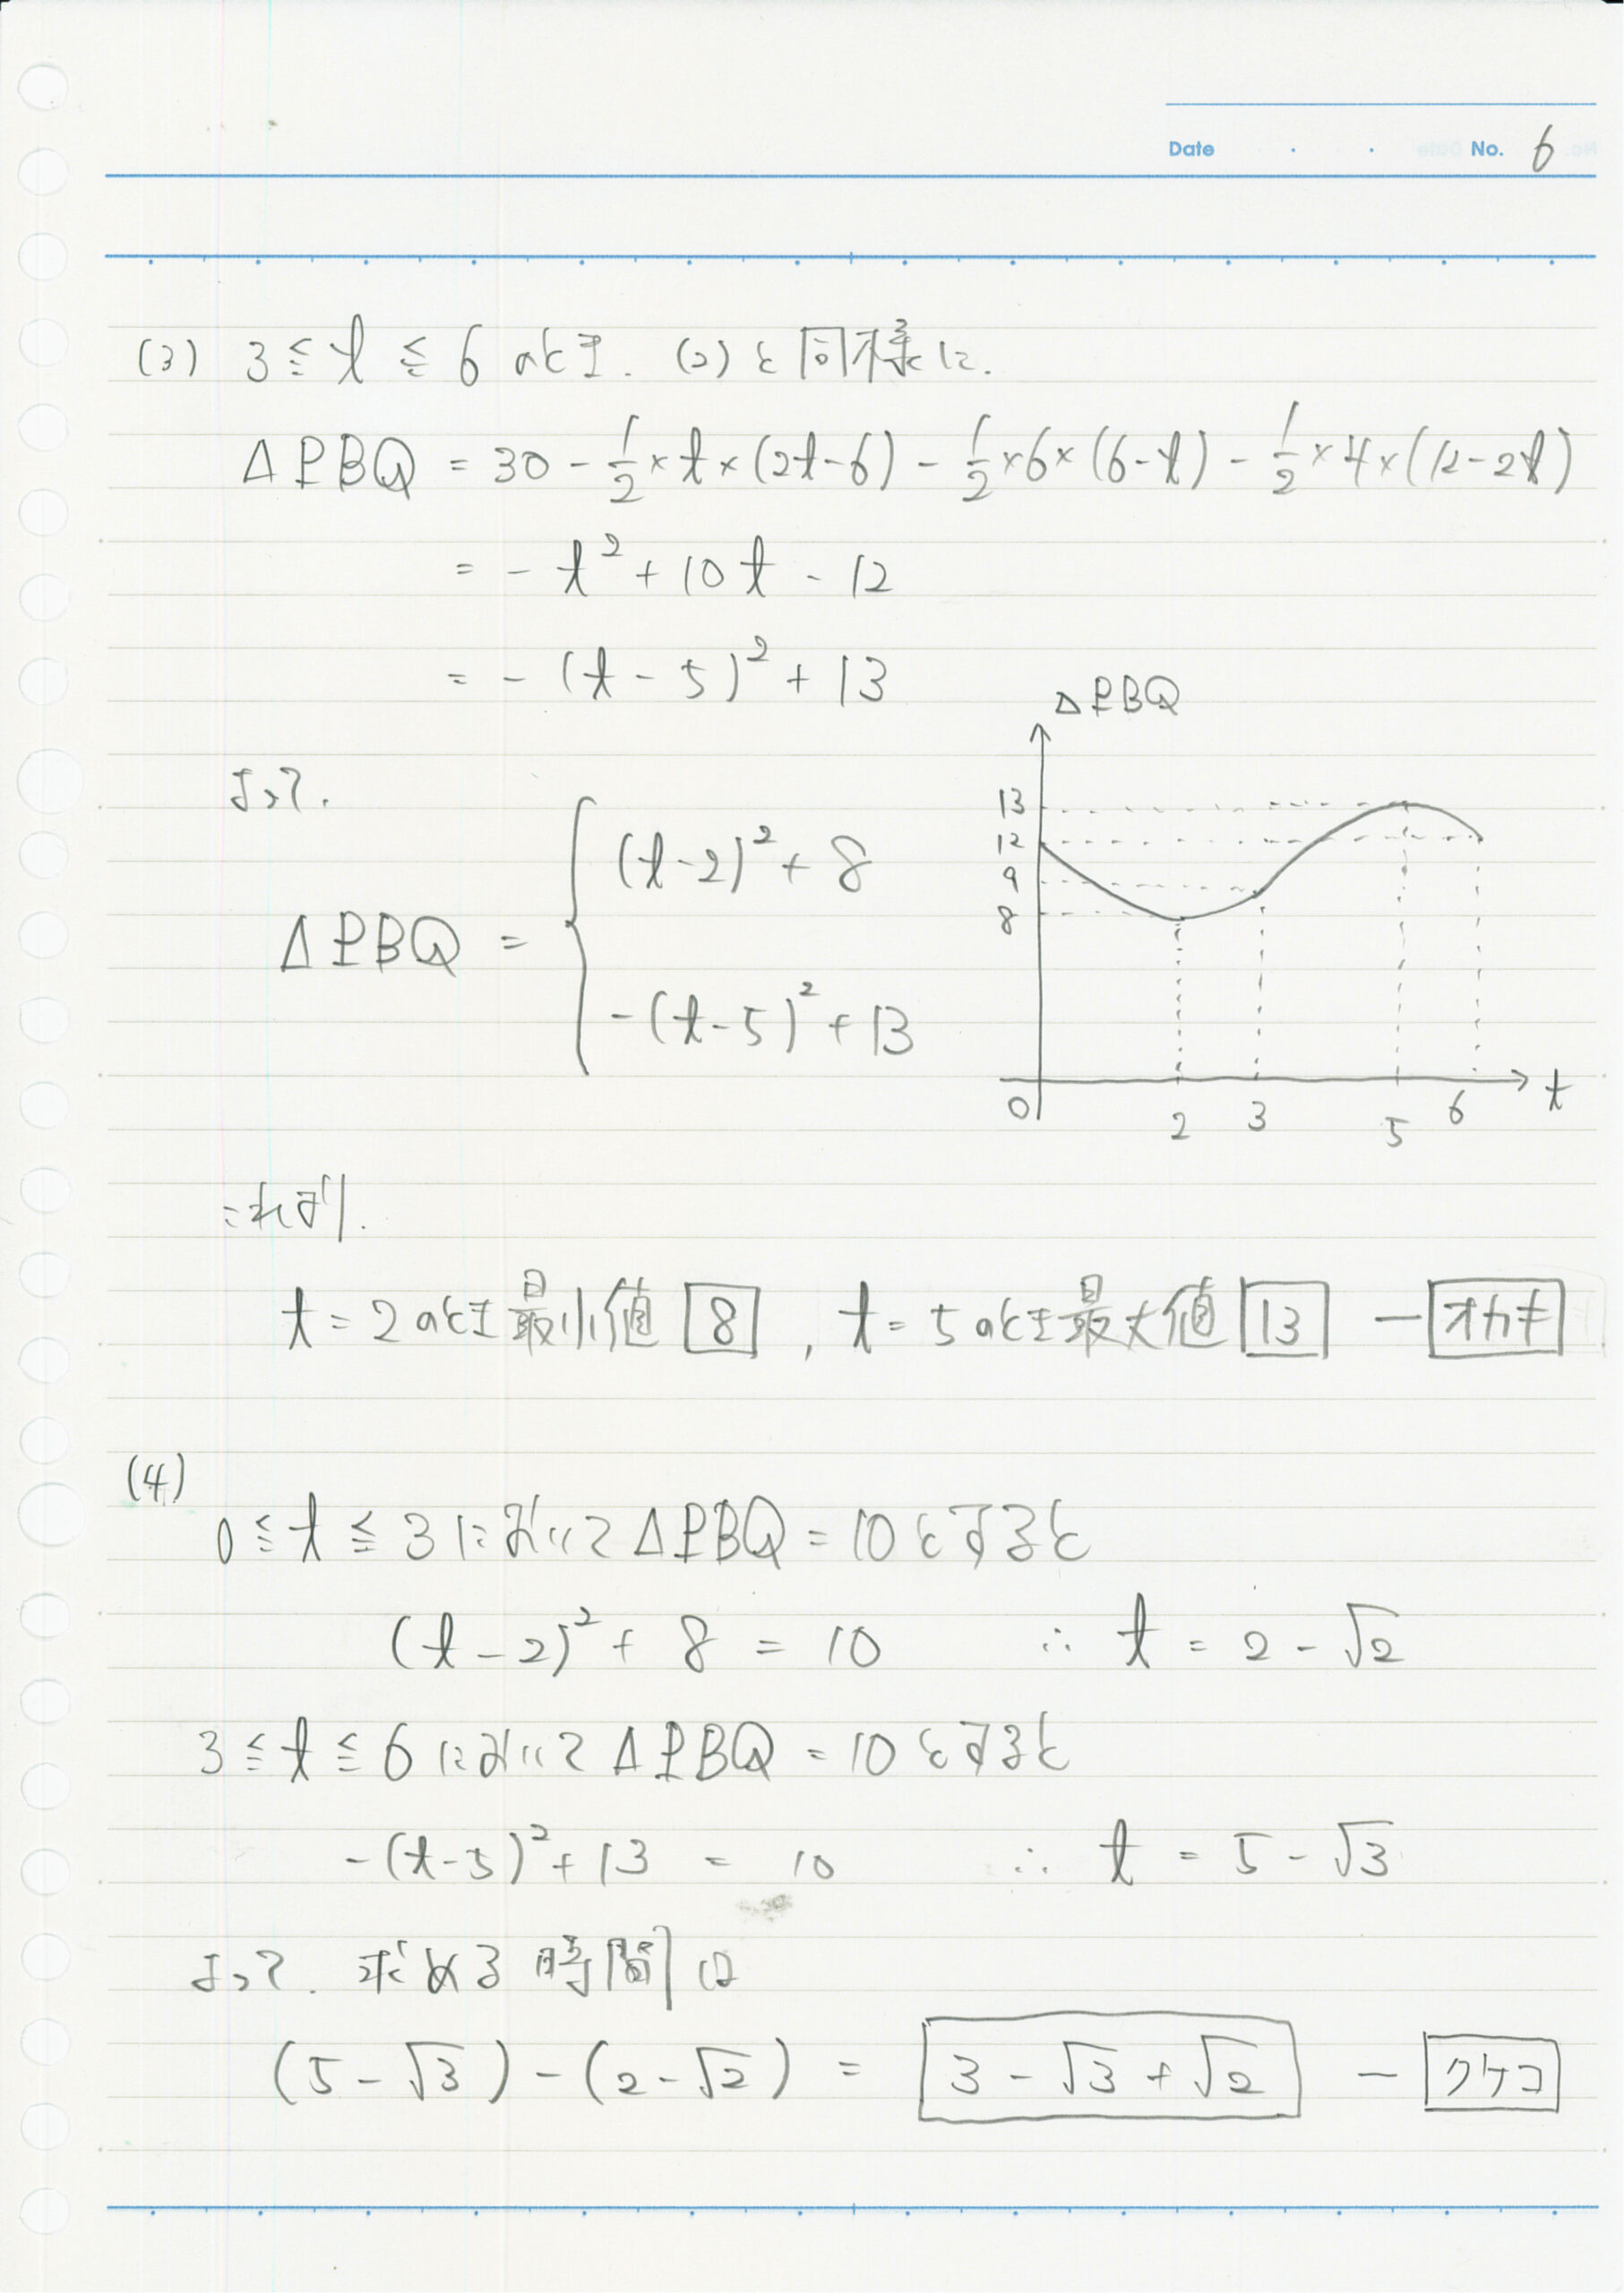 Date ・ ・ No. 6
(3) 3≦t≦6 のとき. (2)と同様に.
△PBQ = 30 - 1/2×t×(2t-6) - 1/2×6×(6-t) - 1/2×4×(12-2t)
= -t²+10t-12
= -(t-5)²+13
よって.
△PBQ = { (t-2)²+8
-(t-5)²+13
△PBQ
13
12
9
8
0 2 3 5 6 t
これより.
t=2のとき最小値 8 , t=5のとき最大値 13 ― オカキ
(4)
0≦t≦3において△PBQ=10とすると
(t-2)²+8=10 ∴ t=2-√2
3≦t≦6において△PBQ=10とすると
-(t-5)²+13=10 ∴ t=5-√3
よって. 求める時間は
(5-√3)-(2-√2) = 3-√3+√2 ― クケコ